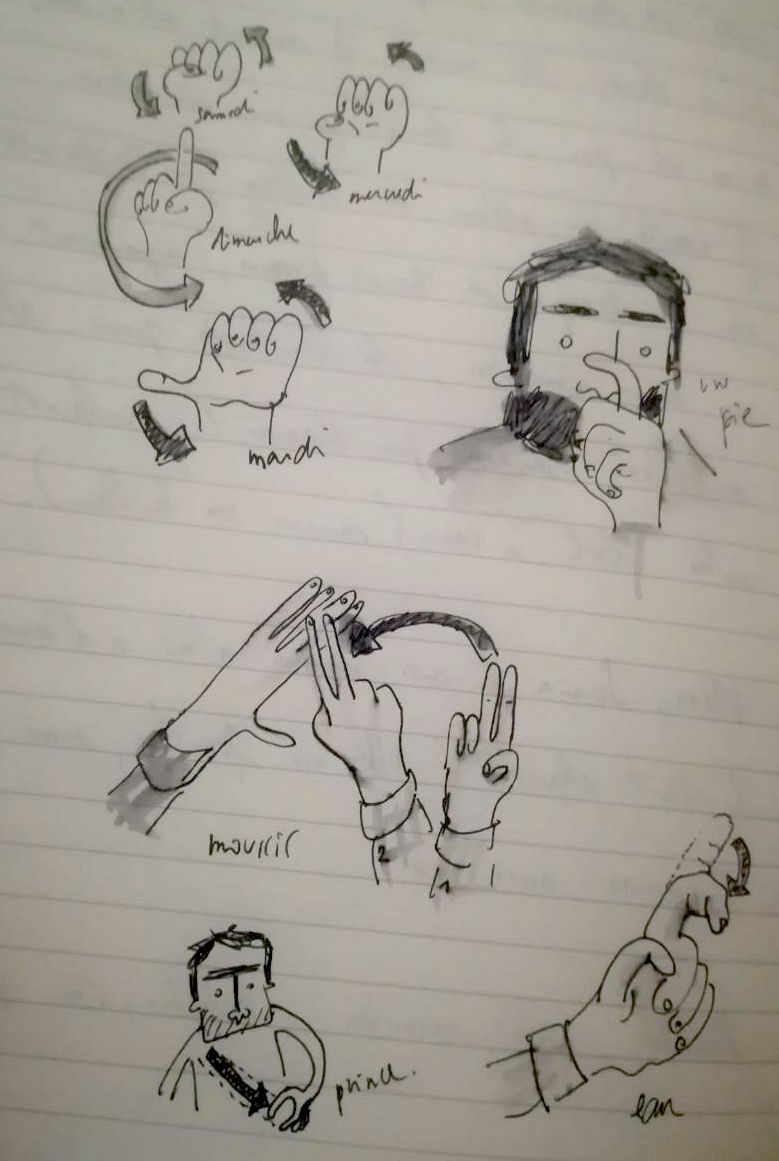 samedi
mercredi
dimanche
mardi
pie
mourrir
2
1
prince.
eau